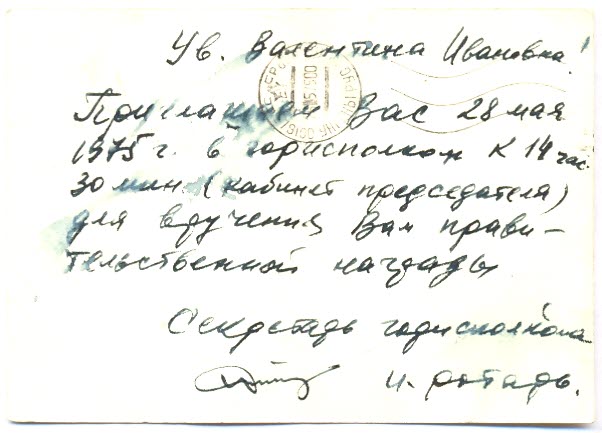 Ув. Валентина Ивановна!
Приглашаем Вас 28 мая
1975 г. в горисполком к 14 час.
30 мин. (кабинет председателя)
для вручения Вам прави-
тельственной награды
Секретарь горисполкома
И. Ротарь.